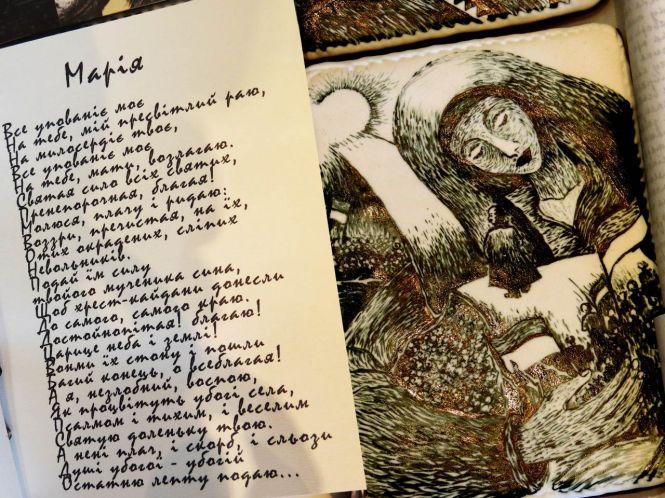 Марія
Все упованіє моє
На тебе, мій пресвітлий раю,
На милосердіє твоє,
Все упованіє моє
На тебе, мати, возлагаю.
Святая сило всіх святих,
Пренепорочная, благая!
Молюся, плачу і ридаю:
Воззри, пречистая, на їх,
Отих окрадених, сліпих
Невольників.
Подай їм силу
твойого мученика сина,
Щоб хрест-кайдани донесли
До самого, самого краю.
Достойнопітая! благаю!
Царице неба і землі!
Вонми їх стону і пошли
Благий конець, о всеблагая!
А я, незлобний, воспою,
Як процвітуть убогі села,
Псалмом і тихим, і веселим
Святую доленьку твою.
А нені плач, і скорб, і сльози
Душі убогої - убогій
Остатню лепту подаю...